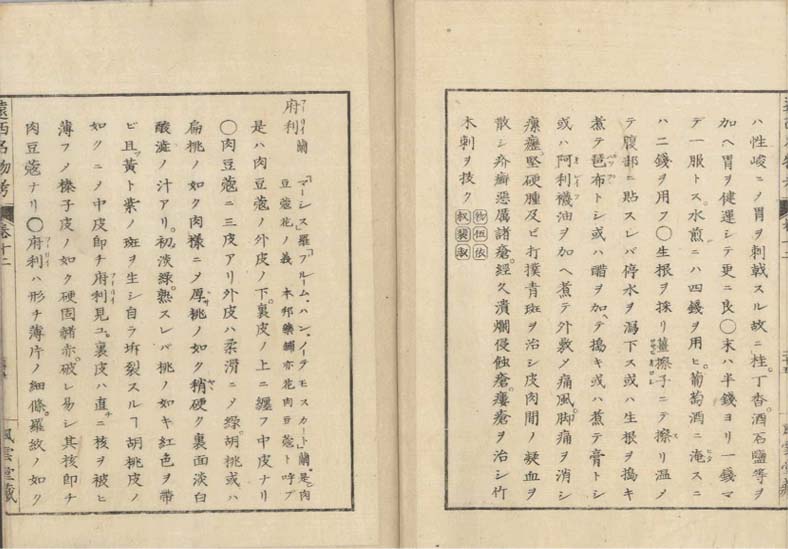 ハ性峻ニノ胃ヲ刺戟スル故ニ桂。丁香。酒石鹽等ヲ
加ヘ胃ヲ健運シテ更ニ良〇末ハ半錢ヨリ一錢マ
デ一服トス。水煎ニハ四錢ヲ用ヒ。葡萄酒ニ淹スニ
ハ二錢ヲ用フ〇生根ヲ採リ薑擦子ニテ擦リ温メ
テ腹部ニ貼スレバ停水ヲ瀉下ス或ハ生根ヲ搗キ
煮テ琶布トシ或ハ醋ヲ加ヘテ搗キ或ハ煮テ膏トシ
或ハ阿利襪油ヲ加ヘ煮テ外敷ノ痛風。脚痛ヲ消シ
瘰癧。堅硬腫及ビ打撲青斑ヲ治シ皮肉間ノ凝血ヲ
散シ疥癬惡厲諸瘡。經久潰爛侵蝕瘡。瘻瘡ヲ治シ竹
木刺ヲ拔ク
府利 蘭「マーシス」羅「フルーム・ハン・ノーテモスカート」蘭。是肉
豆蔻花ノ義 本邦藥鋪亦花肉豆蔻ト呼ブ
是ハ肉豆蔻ノ外皮ノ下。裏皮ノ上ニ纏フ中皮ナリ
〇肉豆蔻ニ三皮アリ外皮ハ柔滑ニノ綠。胡桃或ハ
扁桃ノ如ク肉樣ニノ厚。桃ノ如ク稍硬ク裏面淡白
酸澁ノ汁アリ。初淡綠。熟スレバ桃ノ如キ紅色ヲ帶
ビ且黃ト紫ノ斑ヲ生シ自ラ坼裂スルヿ胡桃皮ノ
如クニノ中皮即チ府利見ユ。裏皮ハ直ニ核ヲ被ヒ
薄フノ榛子皮ノ如ク硬固赭赤。破レ易シ其核即チ
肉豆蔻ナリ〇府利ハ形チ薄片ノ細條。羅紋ノ如ク
遠西名物考
卷十二
風雲堂藏